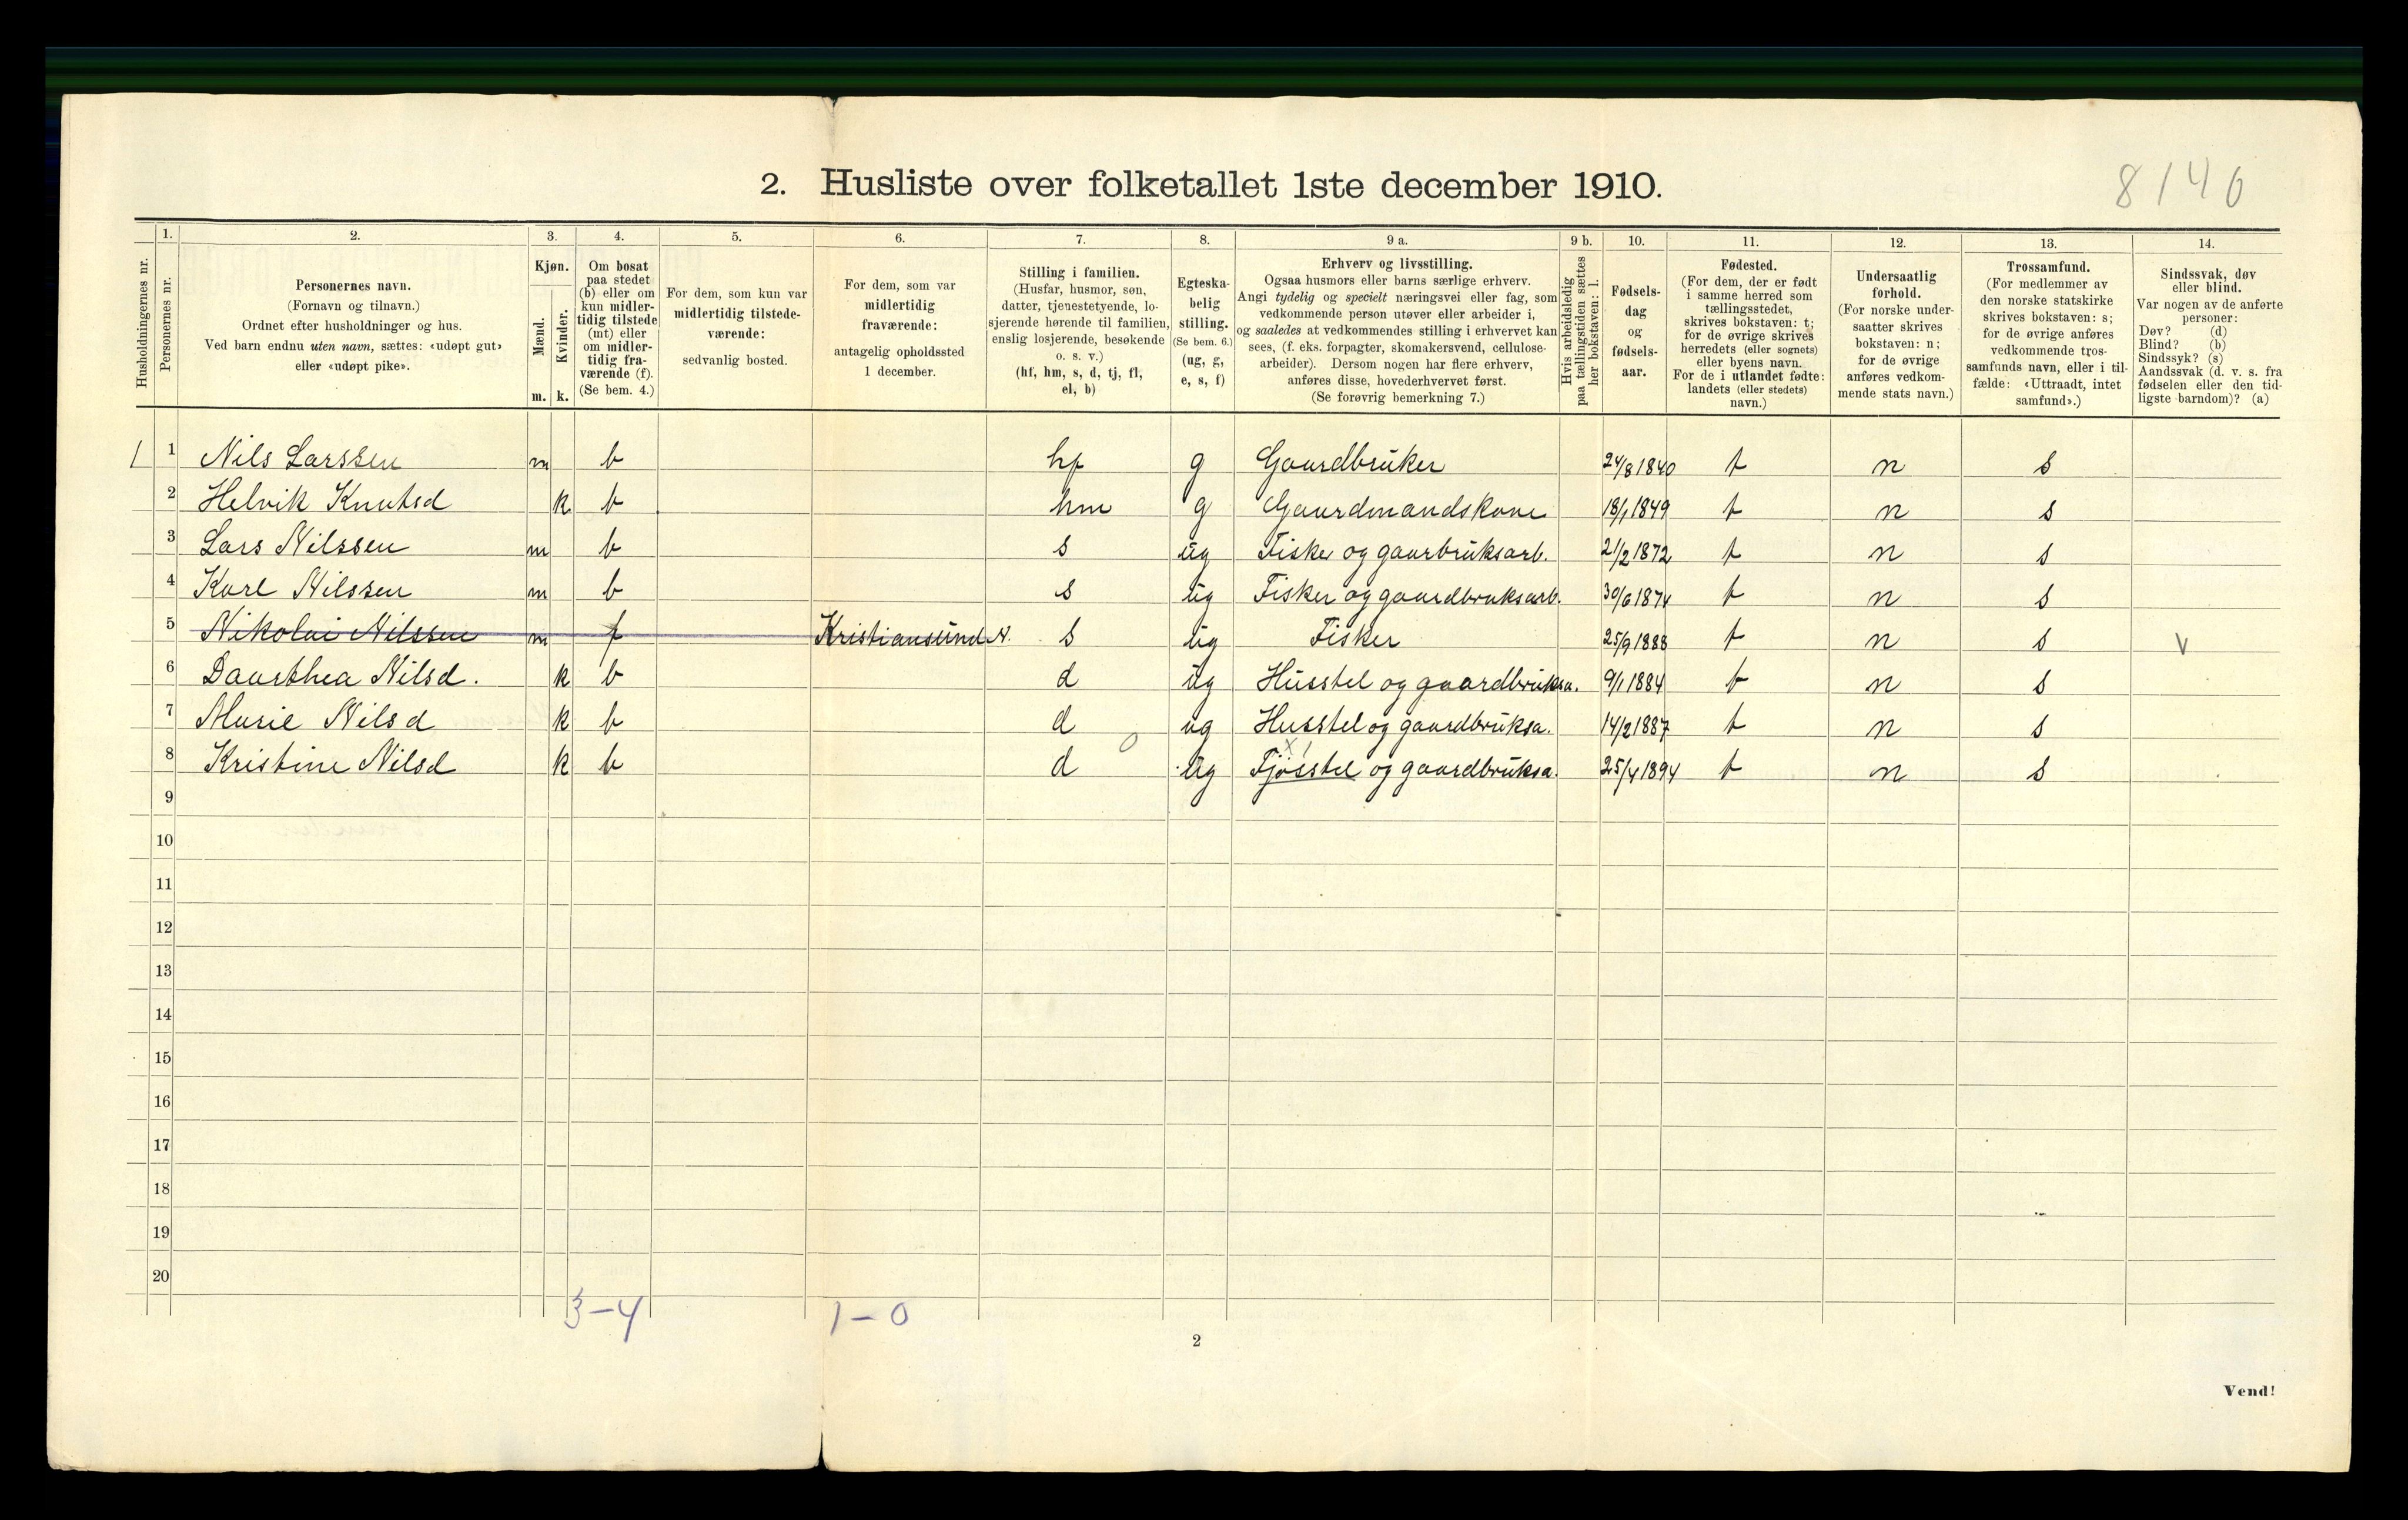 2. Husliste over folketallet 1ste december 1910.
8140
Husholdningernes nr.
1.
Personernes nr.
2.
Personernes navn.
(Fornavn og tilnavn.)
Ordnet efter husholdninger og hus.
Ved barn endnu uten navn, sættes: «udøpt gut»
eller «udøpt pike».
3.
Kjøn.
Mænd.
Kvinder.
m. k.
4.
Om bosat
paa stedet
(b) eller om
kun midler-
tidig tilstede
(mt) eller
om midler-
tidig fra-
værende (f).
(Se bem. 4.)
5.
For dem, som kun var
midlertidig tilstede-
værende:
sedvanlig bosted.
6.
For dem, som var
midlertidig
fraværende:
antagelig opholdssted
1 december.
7.
Stilling i familien.
(Husfar, husmor, søn,
datter, tjenestetyende, lo-
sjerende hørende til familien,
enslig losjerende, besøkende
o. s. v.)
(hf, hm, s, d, tj, fl,
el, b)
8.
Egteska-
belig
stilling.
(Se bem. 6.)
(ug, g,
e, s, f)
9 a.
Erhverv og livsstilling.
Ogsaa husmors eller barns særlige erhverv.
Angi tydelig og specielt næringsvei eller fag, som
vedkommende person utøver eller arbeider i,
og saaledes at vedkommendes stilling i erhvervet kan
sees, (f. eks. forpagter, skomakersvend, cellulose-
arbeider). Dersom nogen har flere erhverv,
anføres disse, hovederhvervet først.
(Se forøvrig bemerkning 7.)
9 b.
Hvis arbeidsledig
paa tællingstiden sættes
her bokstaven: l.
10.
Fødsels-
dag
og
fødsels-
aar.
11.
Fødested.
(For dem, der er født
i samme herred som
tællingsstedet,
skrives bokstaven: t;
for de øvrige skrives
herredets (eller sognets)
eller byens navn.
For de i utlandet fødte:
landets (eller stedets)
navn.)
12.
Undersaatlig
forhold.
(For norske under-
saatter skrives
bokstaven: n;
for de øvrige
anføres vedkom-
mende stats navn.)
13.
Trossamfund.
(For medlemmer av
den norske statskirke
skrives bokstaven: s;
for de øvrige anføres
vedkommende tros-
samfunds navn, eller i til-
fælde: «Uttraadt, intet
samfund».)
14.
Sindssvak, døv
eller blind.
Var nogen av de anførte
personer:
Døv? (d)
Blind? (b)
Sindssyk? (s)
Aandssvak (d. v. s. fra
fødselen eller den tid-
ligste barndom)? (a)
1 1 Nils Larssen m b hf g Gaardbruker 24/8 1840 t n s
2 Helvik Knutsd k b hm g Gaardmandskone 18/1 1849 t n s
3 Lars Nilssen m b s ug Fisker og gaarbruksarb. 21/2 1872 t n s
4 Karl Nilssen m b s ug Fisker og gaardbruksarb. 30/6 1874 t n s
5 Nikolai Nilssen m f Kristiansund N. s ug Fisker 25/9 1888 t n s v
6 Daarthea Nilsd. k b d ug Husstel og gaardbruksa. 9/1 1884 t n s
7 Marie Nilsd k b d ug Husstel og gaardbruksa. 14/2 1887 t n s
8 Kristine Nilsd k b d ug Fjøsstel og gaardbruksa. 25/4 1894 t n s
9
10
11
12
13
14
15
16
17
18
19
20
3-4 1-0
2
Vend!